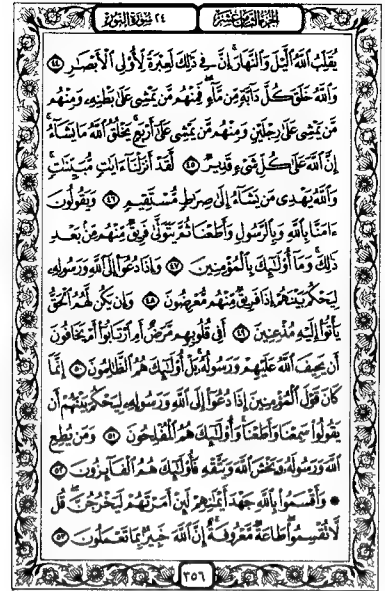 الجزء الثامن عشر
٢٤ سورة النور
يُقَلِّبُ ٱللَّهُ ٱلَّيۡلَ وَٱلنَّهَارَۚ إِنَّ فِي ذَٰلِكَ لَعِبۡرَةٗ لِّأُوْلِي ٱلۡأَبۡصَٰرِ ٤٤
وَٱللَّهُ خَلَقَ كُلَّ دَآبَّةٖ مِّن مَّآءٖۖ فَمِنۡهُم مَّن يَمۡشِي عَلَىٰ بَطۡنِهِۦ وَمِنۡهُم
مَّن يَمۡشِي عَلَىٰ رِجۡلَيۡنِ وَمِنۡهُم مَّن يَمۡشِي عَلَىٰٓ أَرۡبَعٖۚ يَخۡلُقُ ٱللَّهُ مَا يَشَآءُۚ
إِنَّ ٱللَّهَ عَلَىٰ كُلِّ شَيۡءٖ قَدِيرٞ ٤٥ لَّقَدۡ أَنزَلۡنَآ ءَايَٰتٖ مُّبَيِّنَٰتٖۚ
وَٱللَّهُ يَهۡدِي مَن يَشَآءُ إِلَىٰ صِرَٰطٖ مُّسۡتَقِيمٖ ٤٦ وَيَقُولُونَ
ءَامَنَّا بِٱللَّهِ وَبِٱلرَّسُولِ وَأَطَعۡنَا ثُمَّ يَتَوَلَّىٰ فَرِيقٞ مِّنۡهُم مِّنۢ بَعۡدِ
ذَٰلِكَۚ وَمَآ أُوْلَٰٓئِكَ بِٱلۡمُؤۡمِنِينَ ٤٧ وَإِذَا دُعُوٓاْ إِلَى ٱللَّهِ وَرَسُولِهِۦ
لِيَحۡكُمَ بَيۡنَهُمۡ إِذَا فَرِيقٞ مِّنۡهُم مُّعۡرِضُونَ ٤٨ وَإِن يَكُن لَّهُمُ ٱلۡحَقُّ
يَأۡتُوٓاْ إِلَيۡهِ مُذۡعِنِينَ ٤٩ أَفِي قُلُوبِهِم مَّرَضٌ أَمِ ٱرۡتَابُوٓاْ أَمۡ يَخَافُونَ
أَن يَحِيفَ ٱللَّهُ عَلَيۡهِمۡ وَرَسُولُهُۥۚ بَلۡ أُوْلَٰٓئِكَ هُمُ ٱلظَّٰلِمُونَ ٥٠ إِنَّمَا
كَانَ قَوۡلَ ٱلۡمُؤۡمِنِينَ إِذَا دُعُوٓاْ إِلَى ٱللَّهِ وَرَسُولِهِۦ لِيَحۡكُمَ بَيۡنَهُمۡ أَن
يَقُولُواْ سَمِعۡنَا وَأَطَعۡنَاۚ وَأُوْلَٰٓئِكَ هُمُ ٱلۡمُفۡلِحُونَ ٥١ وَمَن يُطِعِ
ٱللَّهَ وَرَسُولَهُۥ وَيَخۡشَ ٱللَّهَ وَيَتَّقۡهِ فَأُوْلَٰٓئِكَ هُمُ ٱلۡفَآئِزُونَ ٥٢
۞ وَأَقۡسَمُواْ بِٱللَّهِ جَهۡدَ أَيۡمَٰنِهِمۡ لَئِنۡ أَمَرۡتَهُمۡ لَيَخۡرُجُنَّۖ قُل
لَّا تُقۡسِمُواْۖ طَاعَةٞ مَّعۡرُوفَةٌۚ إِنَّ ٱللَّهَ خَبِيرُۢ بِمَا تَعۡمَلُونَ ٥٣
٣٥٦